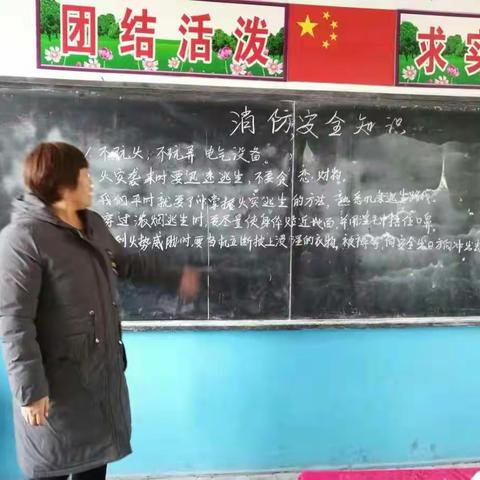 团结活泼
求实
消防安全知识
1、不玩火,不玩弄电气设备。
火灾袭来时要迅速逃生,不要贪恋财物。
我们平时就要了解掌握火灾逃生的方法,熟悉几条逃生路线。
穿过浓烟逃生时,要尽量使身体贴近地面,并用湿毛巾捂住口鼻。
到火势威胁时,要当机立断披上浸湿的衣物、被褥等,向安全出口方向冲出去